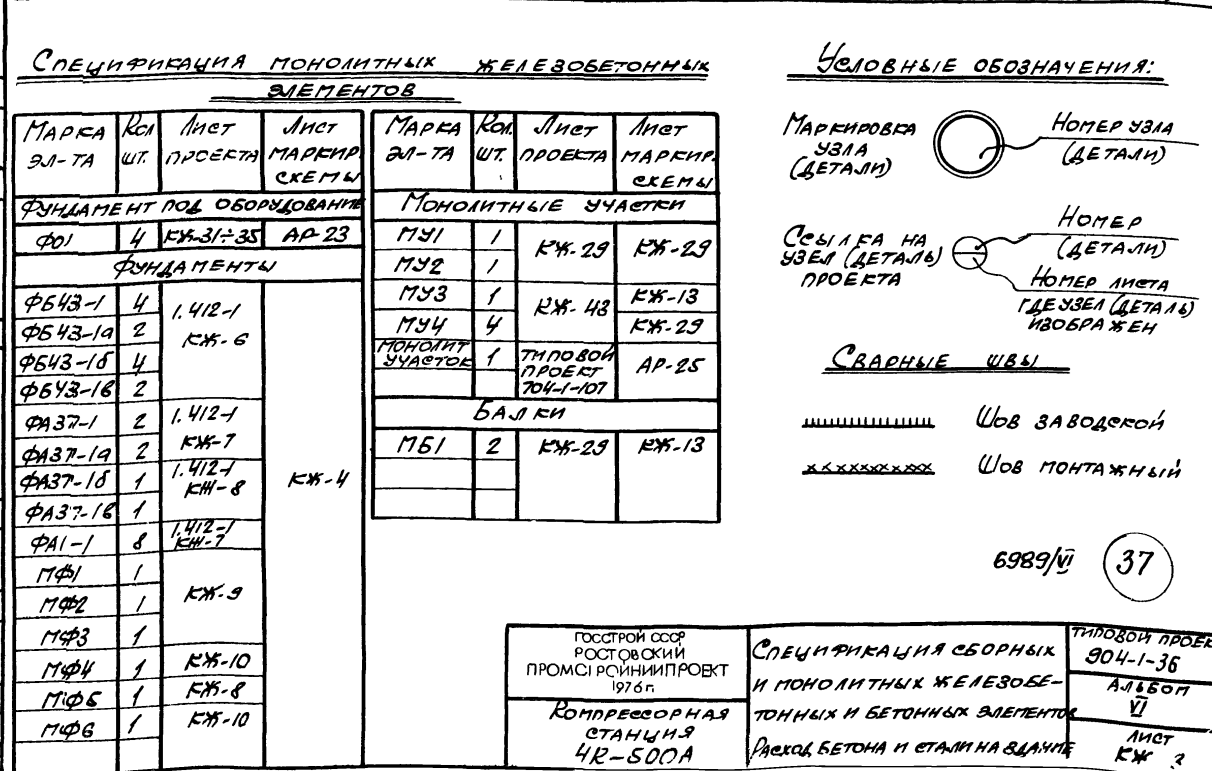 Спецификация монолитных железобетонных
элементов
Марка эл-та | Кол шт. | Лист проекта | Лист маркир. схемы
Фундамент под оборудование
ФО1 | 4 | КЖ-31÷35 | АР-23
Фундаменты
ФБ43-1 | 4 | 1.412-1 КЖ-6 | КЖ-4
ФБ43-1а | 2
ФБ43-1б | 4
ФБ43-1в | 2
ФА37-1 | 2 | 1.412-1 КЖ-7
ФА37-1а | 2
ФА37-1б | 1 | 1.412-1 КЖ-8
ФА37-1в | 1
ФА1-1 | 8 | 1.412-1 КЖ-7
МФ1 | 1 | КЖ-9
МФ2 | 1
МФ3 | 1
МФ4 | 1 | КЖ-10
МФ5 | 1 | КЖ-8
МФ6 | 1 | КЖ-10
Марка эл-та | Кол. шт. | Лист проекта | Лист маркир. схемы
Монолитные участки
МУ1 | 1 | КЖ-29 | КЖ-29
МУ2 | 1
МУ3 | 1 | КЖ-43 | КЖ-13
МУ4 | 4 | КЖ-29
Монолит участок | 1 | Типовой проект 704-1-107 | АР-25
Балки
МБ1 | 2 | КЖ-29 | КЖ-13
Условные обозначения:
Маркировка
узла
(детали)
Номер узла
(детали)
Ссылка на
узел (деталь)
проекта
Номер
(детали)
Номер листа
где узел (деталь)
изображен
Сварные швы
Шов заводской
Шов монтажный
6989/VI
37
ГОССТРОЙ СССР
РОСТОВСКИЙ
ПРОМСТРОЙНИИПРОЕКТ
1976 г.
Компрессорная
станция
4К-500А
Спецификация сборных
и монолитных железобе-
тонных и бетонных элементов
Расход бетона и стали на здание
Типовой проек
904-1-36
Альбом
VI
Лист
КЖ 3